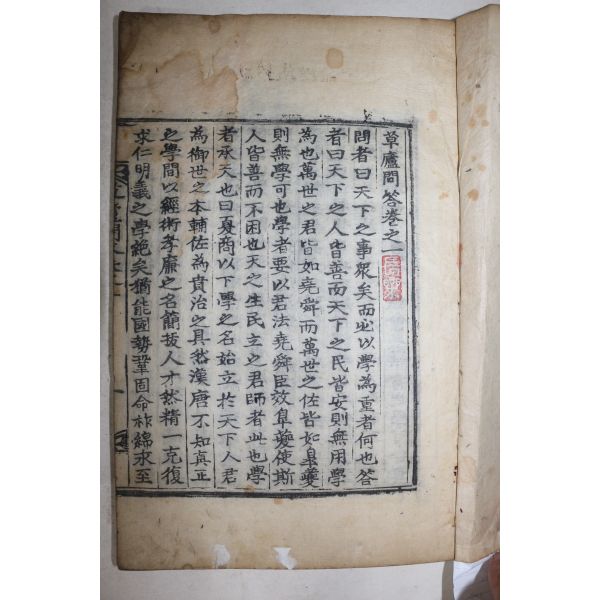 草廬問答卷之一
問者曰天下之事衆矣而必以學為重者何也答
者曰天下之人皆善而天下之民皆安則無用學
為也萬世之君皆如堯舜而萬世之佐皆如皐夔
則無學可也學者要以君法堯舜臣效皐夔使斯
人皆善而不困也天之生民立之君師者此也學
者承天也曰夏商以下學之名始立扵天下人君
為御世之本輔佐為貴治之具然漢唐不知真正
之學間以經術孝廉之名簡拔人才然精一克復
求仁明義之學絶矣猶能國勢鞏固命祚綿永至